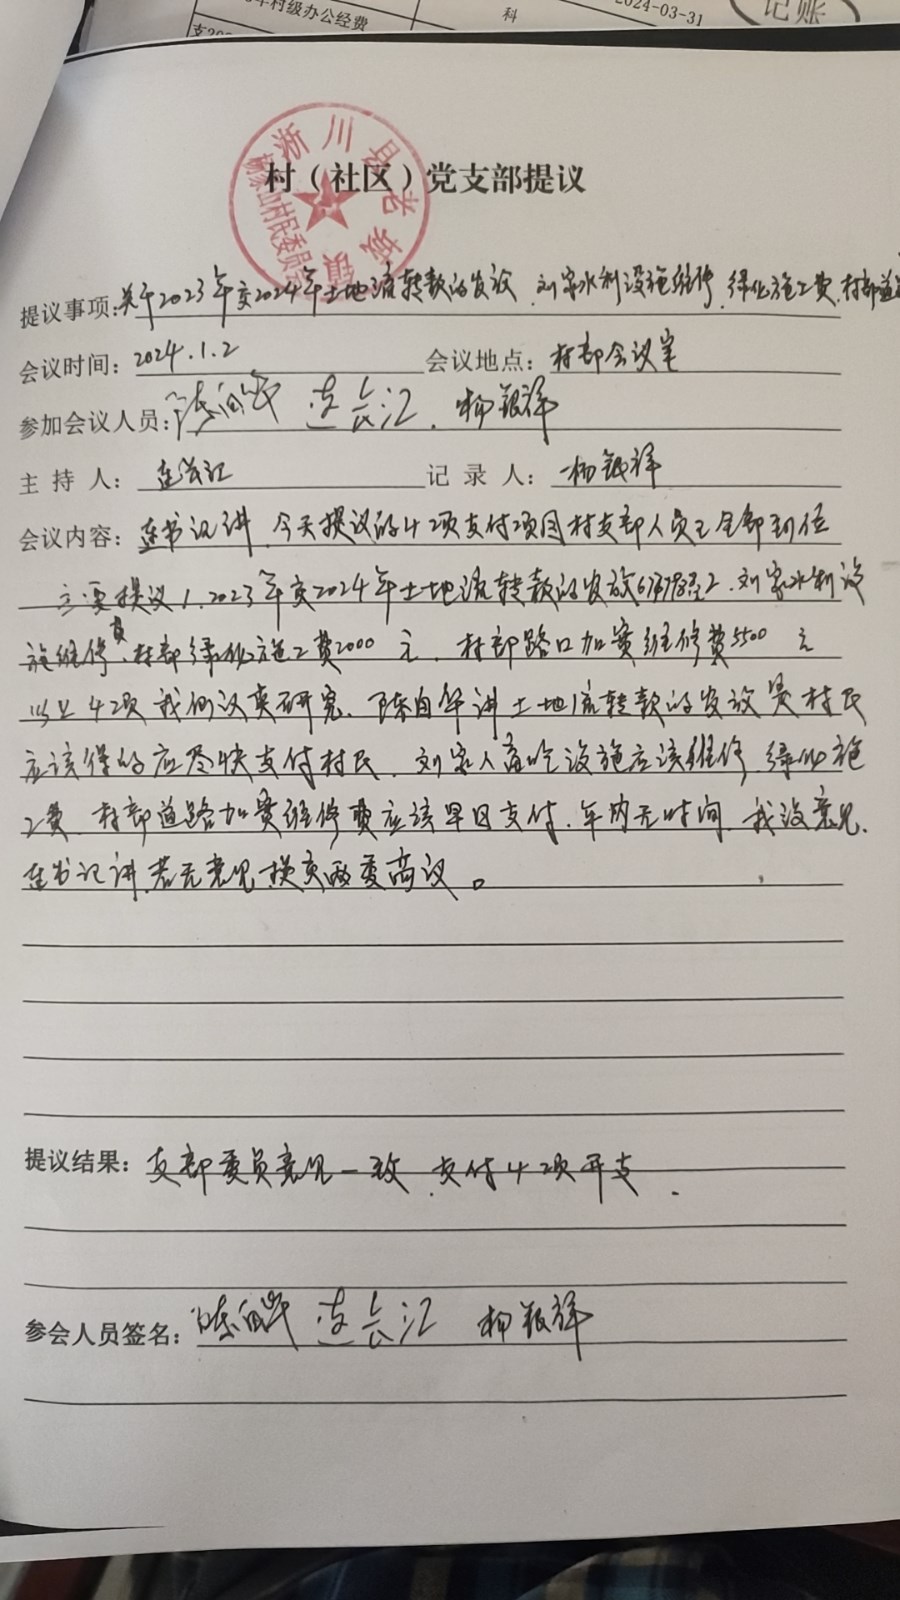 年村级办公经费
科
2024-03-31
记账
淅川县老城镇
村民委员会
村（社区）党支部提议
提议事项：关于2023年亥2024年土地流转款的发议 刘家水利设施维修，绿化施工费，村部道
会议时间：2024.1.2 会议地点：村部会议室
参加会议人员：陈自华 连长江．杨银祥
主持人：连长江 记录人：杨银祥
会议内容：连书记讲，今天提议的4项支付项目村支部人员已全部到位
主要提议1．2023年亥2024年土地流转款的发放 2．刘家水利设
施维修费、村部绿化施工费2000元．村部路口加宽维修费5500元
以上4项我们认真研究．陈自华讲土地流转款的发议是村民
应该得的应尽快支付村民．刘家人畜吃设施应该维修．绿化施
工费．村部道路加宽维修费应该早日支付．年内无时间．我没意见．
连书记讲．若无意见提交两委商议。
提议结果：支部委员意见一致．支付4项开支．
参会人员签名：陈自华 连长江 杨银祥